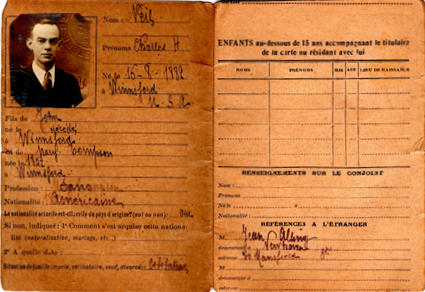 Nom : Veil
Prénoms Charles H
Né le 15-8-1882
à Winnsford
U.S.A
Fils de John
né le décédé
à Winnsford
et de
née le
à Winnsford
Profession
Nationalité Américaine
La nationalité actuelle est-elle du pays d'origine? (oui ou non): Oui
Si non, indiquer : 1° Comment s'est acquise cette nationa-
lité (naturalisation, mariage, etc.)
2° A quelle date :
Situation de famille (marié, célibataire, veuf, divorcé) : Célibataire
ENFANTS au-dessous de 15 ans accompagnant le titulaire
de la carte ou résidant avec lui
NOMS PRÉNOMS AGE LIEU DE NAISSANCE
RENSEIGNEMENTS SUR LE CONJOINT
Nom :
Prénoms :
Né le à
Nationalité :
RÉFÉRENCES A L'ÉTRANGER
M. Jean
demeurant à
adresse
M.
demeurant à
adresse